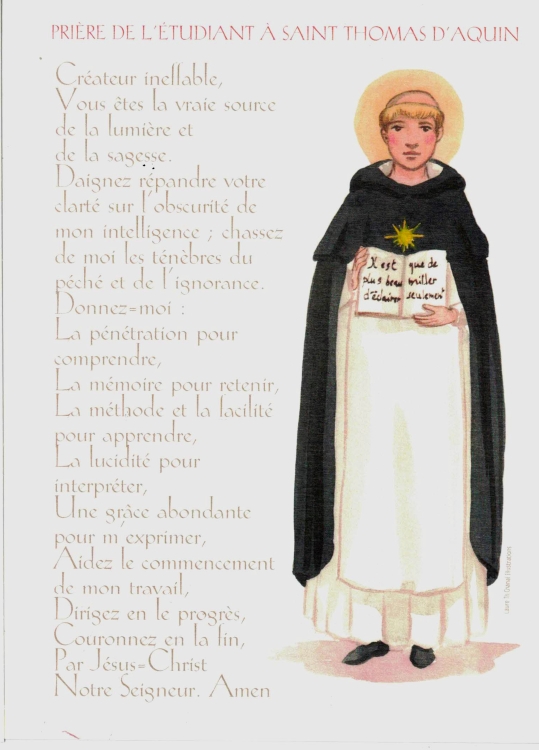 PRIÈRE DE L'ÉTUDIANT À SAINT THOMAS D'AQUIN
Créateur ineffable,
Vous êtes la vraie source
de la lumière et
de la sagesse.
Daignez répandre votre
clarté sur l'obscurité de
mon intelligence ; chassez
de moi les ténèbres du
péché et de l'ignorance.
Donnez=moi :
La pénétration pour
comprendre,
La mémoire pour retenir,
La méthode et la facilité
pour apprendre,
La lucidité pour
interpréter,
Une grâce abondante
pour m'exprimer,
Aidez le commencement
de mon travail,
Dirigez en le progrès,
Couronnez en la fin,
Par Jésus=Christ
Notre Seigneur. Amen
Il est
plus beau
d'éclairer
que de
briller
seulement
Illustrations